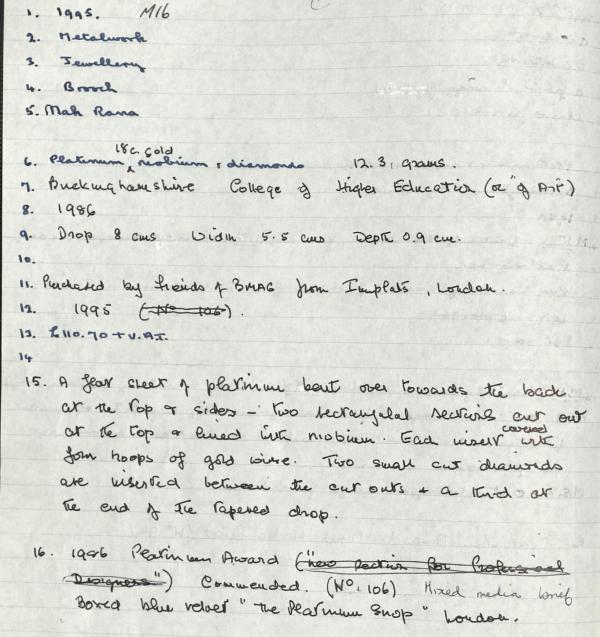 1. 1995. M16
2. Metalwork
3. Jewellery
4. Brooch
5. Mah Rana
18c. gold
6. Platinum, niobium & diamonds 12.3, grams.
7. Buckinghamshire College of Higher Education (or "of Art)
8. 1986
9. Drop 8 cms Width 5.5 cms Depth 0.9 cm.
10.
11. Purchased by friends of BMAG from Implats, London.
12. 1995 (No 106).
13. £110.70 + V.A.T.
14
15. A flat sheet of platinum bent over towards the back
at the top & sides – two rectangular sections cut out
at the top & lined with niobium. Each insert covered with
four hoops of gold wire. Two small cut diamonds
are inserted between the cut outs + a third at
the end of the tapered drop.
16. 1986 Platinum Award ("new section for Professional
Designers") Commended. (No. 106) Mixed media brief
Boxed blue velvet "the Platinum Shop" London.